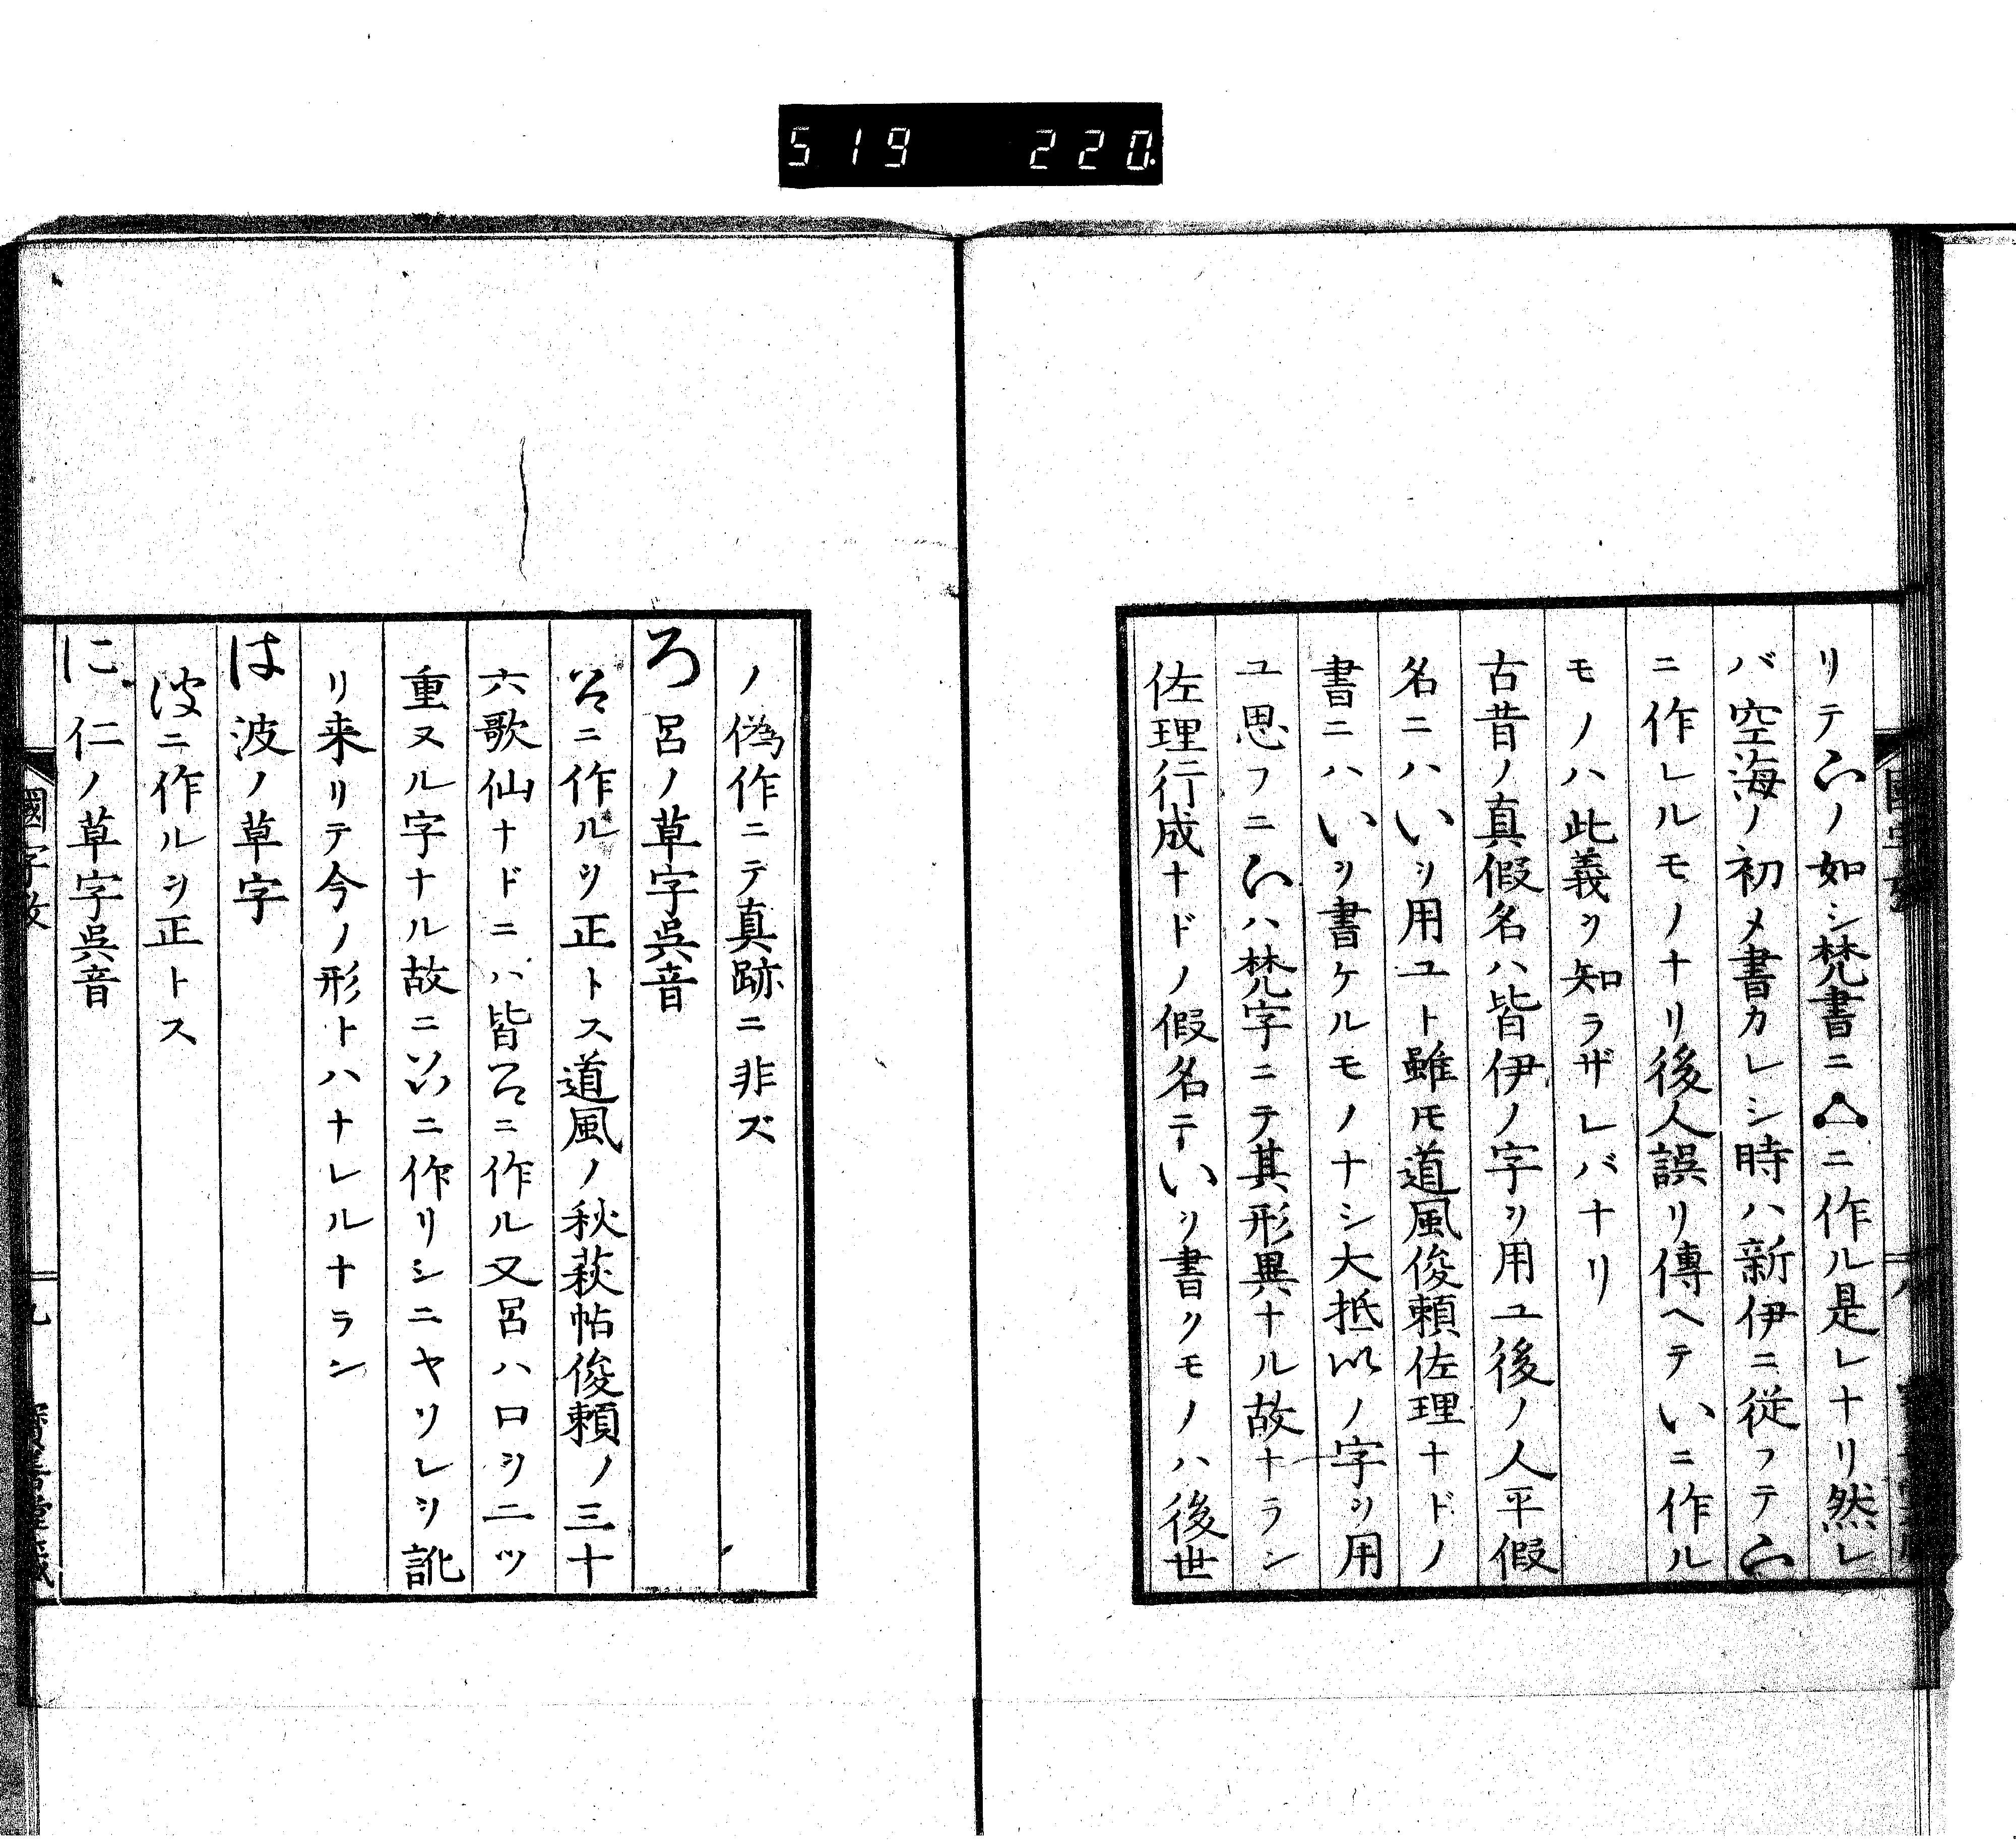 519 220.
リテ〿ノ如シ梵書ニ∴ニ作ル是レナリ然レ
バ空海ノ初メ書カレシ時ハ新伊ニ従フテ
ニ作レルモノナリ後人誤リ傳ヘテいニ作ル
モノハ此義ヲ知ラザレバナリ
古昔ノ真假名ハ皆伊ノ字ヲ用ユ後ノ人平假
名ニハいヲ用ユト雖モ道風俊頼佐理ナドノ
書ニハいヲ書ケルモノナシ大抵以ノ字ヲ用
ユ思フニハ梵字ニテ其形異ナル故ナラン
佐理行成ナドノ假名ニテいヲ書クモノハ後世
ノ偽作ニテ真跡ニ非ズ
ろ 呂ノ草字呉音
ニ作ルヲ正トス道風ノ秋萩帖俊頼ノ三十
六歌仙ナドニハ皆ニ作ル又呂ハ口ヲ二ツ
重ヌル字ナル故ニニ作リシニヤソレヲ訛
リ来リテ今ノ形トハナレルナラン
は 波ノ草字
波ニ作ルヲ正トス
に 仁ノ草字呉音
國字攷 九